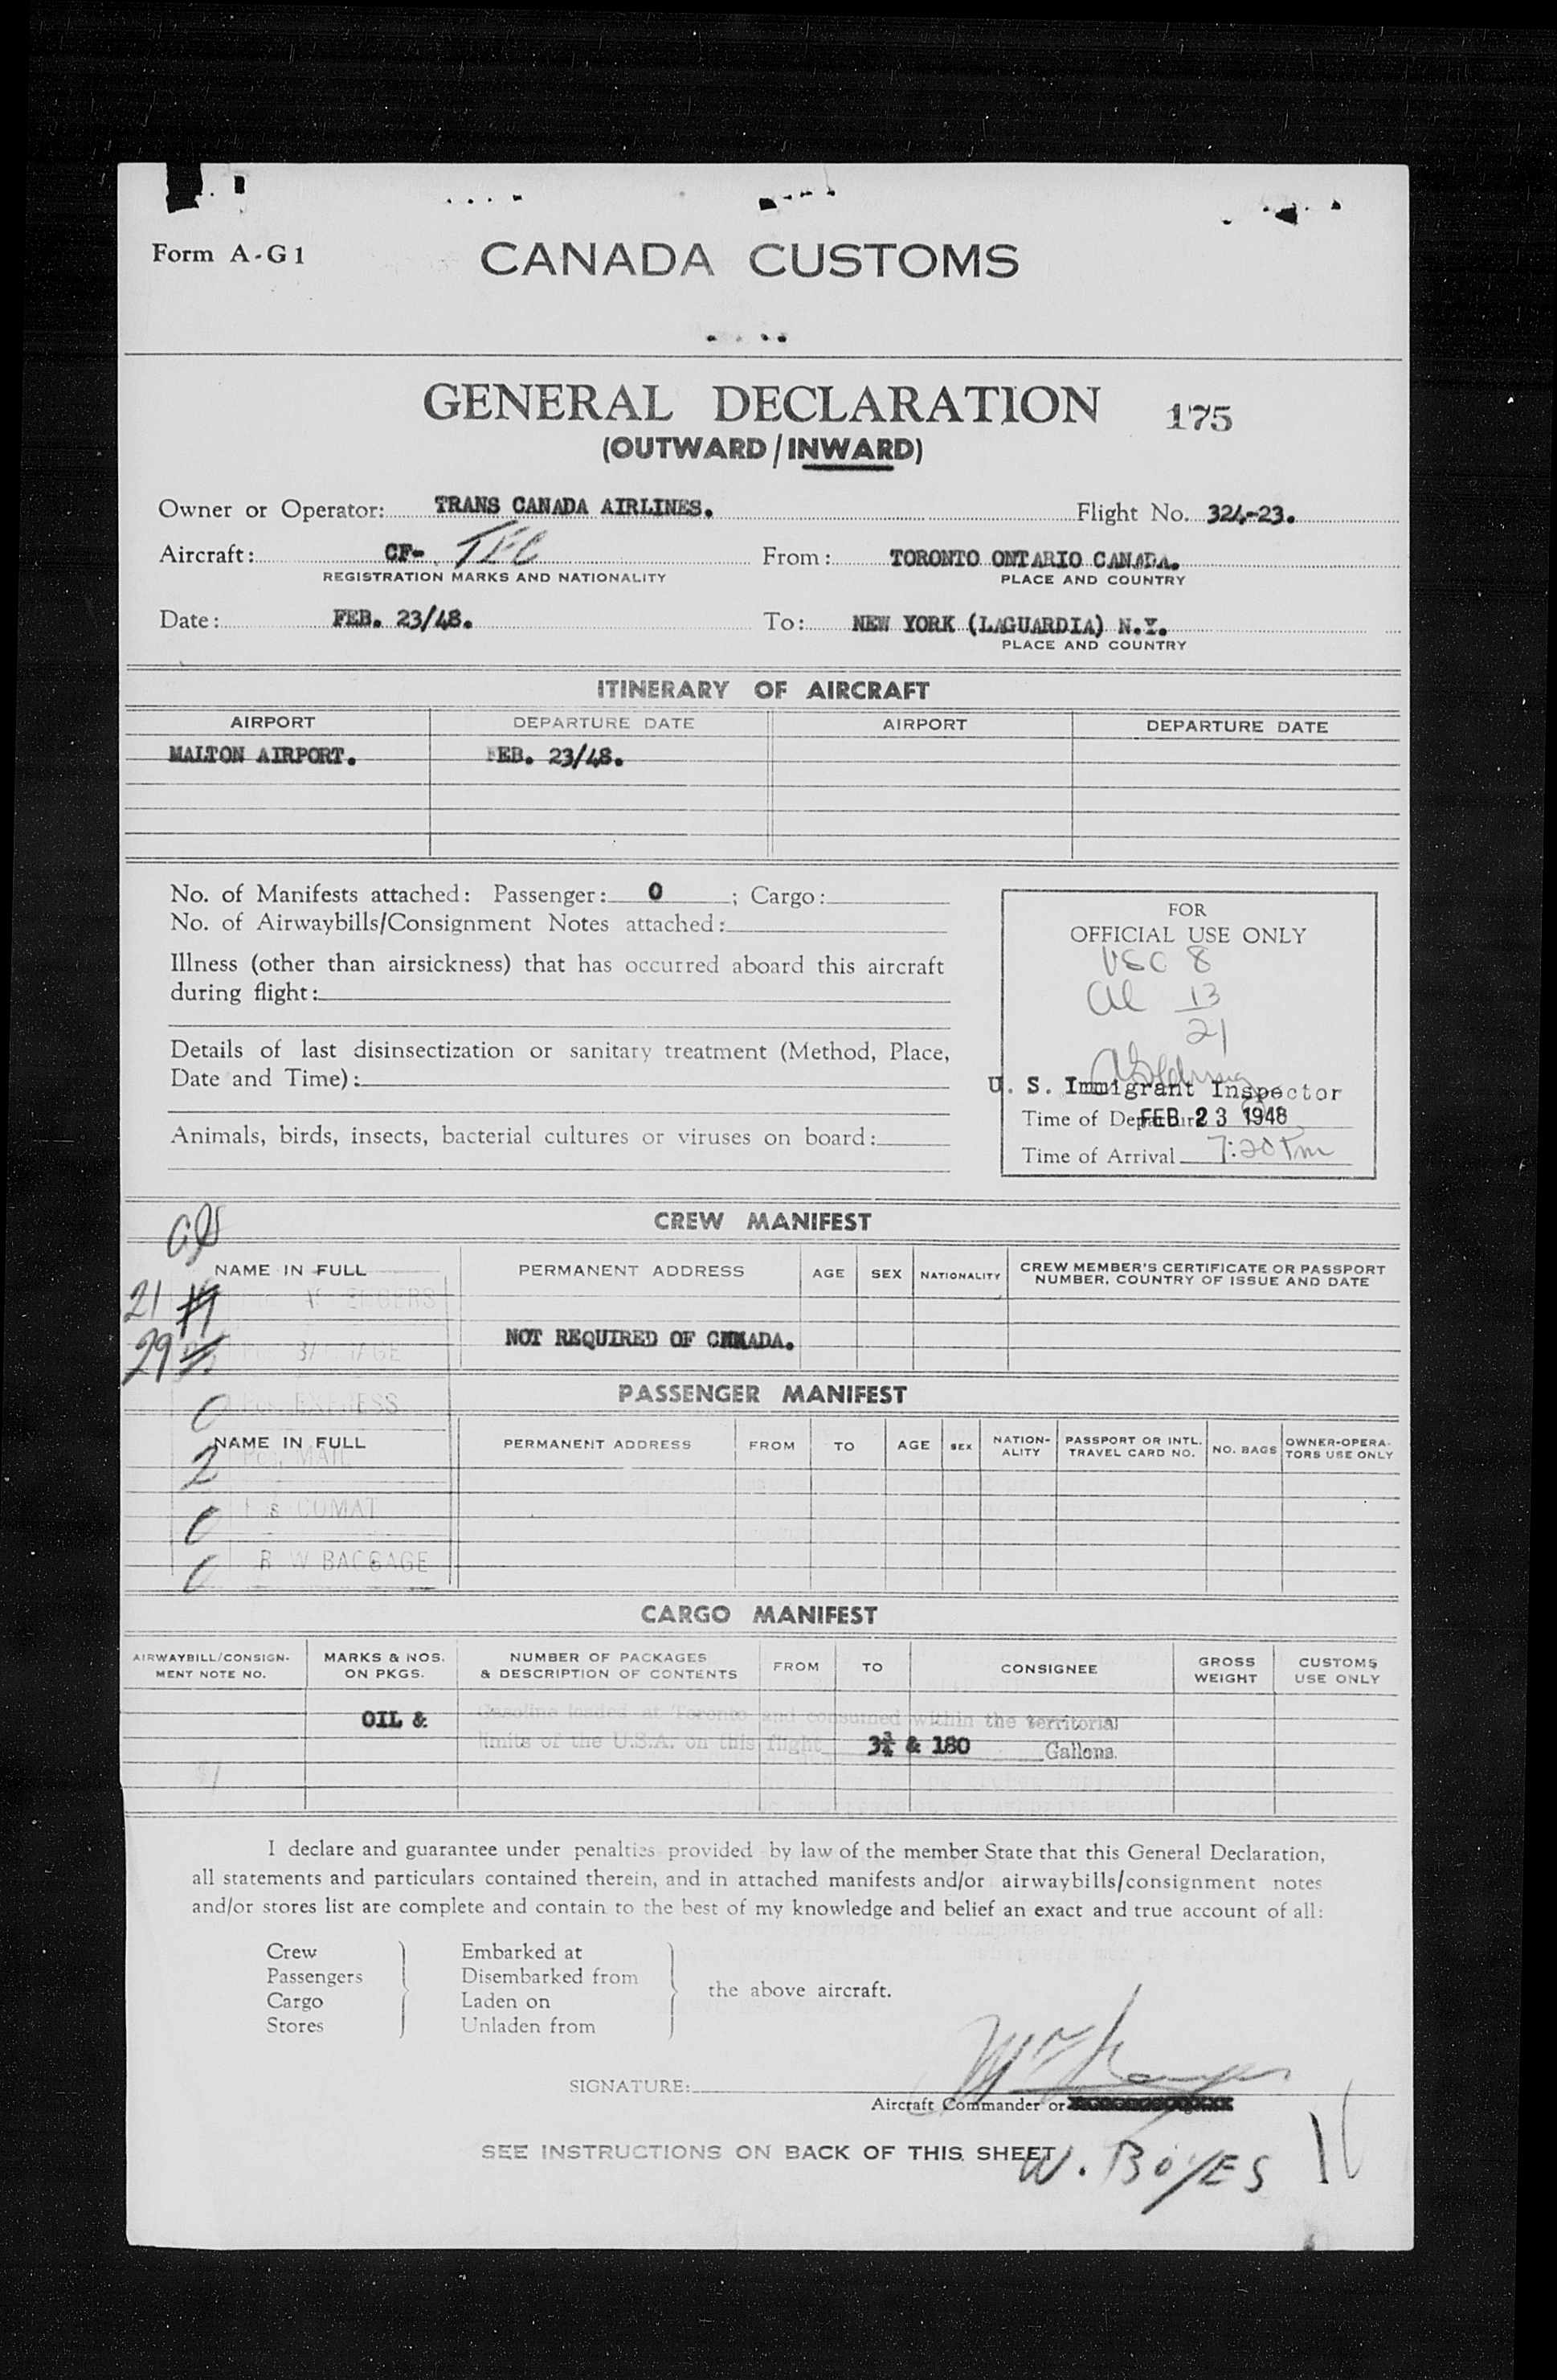 Form A-G1
CANADA CUSTOMS
GENERAL DECLARATION 175
(OUTWARD/INWARD)
Owner or Operator: TRANS CANADA AIRLINES. Flight No. 324-23.
Aircraft: CF- From: TORONTO ONTARIO CANADA.
REGISTRATION MARKS AND NATIONALITY PLACE AND COUNTRY
Date: FEB. 23/48. To: NEW YORK (LAGUARDIA) N.Y.
PLACE AND COUNTRY
ITINERARY OF AIRCRAFT
AIRPORT DEPARTURE DATE AIRPORT DEPARTURE DATE
MALTON AIRPORT. FEB. 23/48.
No. of Manifests attached: Passenger: 0 ; Cargo:
No. of Airwaybills/Consignment Notes attached:
Illness (other than airsickness) that has occurred aboard this aircraft
during flight:
Details of last disinsectization or sanitary treatment (Method, Place,
Date and Time):
Animals, birds, insects, bacterial cultures or viruses on board:
FOR
OFFICIAL USE ONLY
USC 8
Al 13
21
U. S. Immigrant Inspector
Time of Departure FEB 23 1948
Time of Arrival 7:20 Pm
CREW MANIFEST
NAME IN FULL PERMANENT ADDRESS AGE SEX NATIONALITY CREW MEMBER'S CERTIFICATE OR PASSPORT
NUMBER, COUNTRY OF ISSUE AND DATE
21
NOT REQUIRED OF CANADA.
29 BAGGAGE
PASSENGER MANIFEST
0 EXPRESS
NAME IN FULL PERMANENT ADDRESS FROM TO AGE SEX NATION-
ALITY PASSPORT OR INTL.
TRAVEL CARD NO. NO. BAGS OWNER-OPERA-
TORS USE ONLY
2 MAIL
0 COMAT
0 R W BAGGAGE
CARGO MANIFEST
AIRWAYBILL/CONSIGN-
MENT NOTE NO. MARKS & NOS.
ON PKGS. NUMBER OF PACKAGES
& DESCRIPTION OF CONTENTS FROM TO CONSIGNEE GROSS
WEIGHT CUSTOMS
USE ONLY
OIL & Gasoline loaded at Toronto and consumed within the territorial
limits of the U.S.A. on this flight 3¾ & 180 Gallons.
I declare and guarantee under penalties provided by law of the member State that this General Declaration,
all statements and particulars contained therein, and in attached manifests and/or airwaybills/consignment notes
and/or stores list are complete and contain to the best of my knowledge and belief an exact and true account of all:
Crew Embarked at
Passengers Disembarked from
the above aircraft.
Cargo Laden on
Stores Unladen from
SIGNATURE:
Aircraft Commander or
SEE INSTRUCTIONS ON BACK OF THIS SHEET
W. BOYES